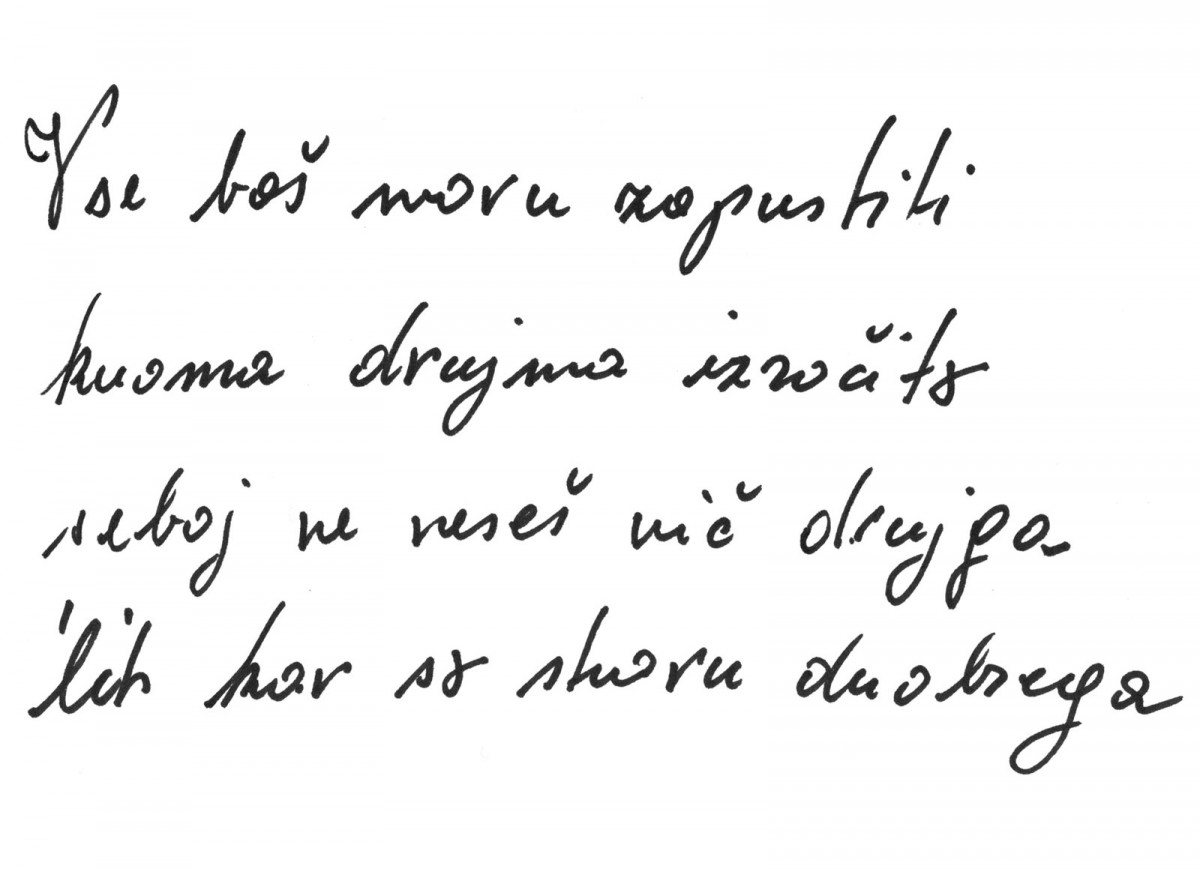 Vse boš moru zapustiti
kuoma drujma izročitə
seboj ne neseš nič drujga
'lih kar sə storu duobrega